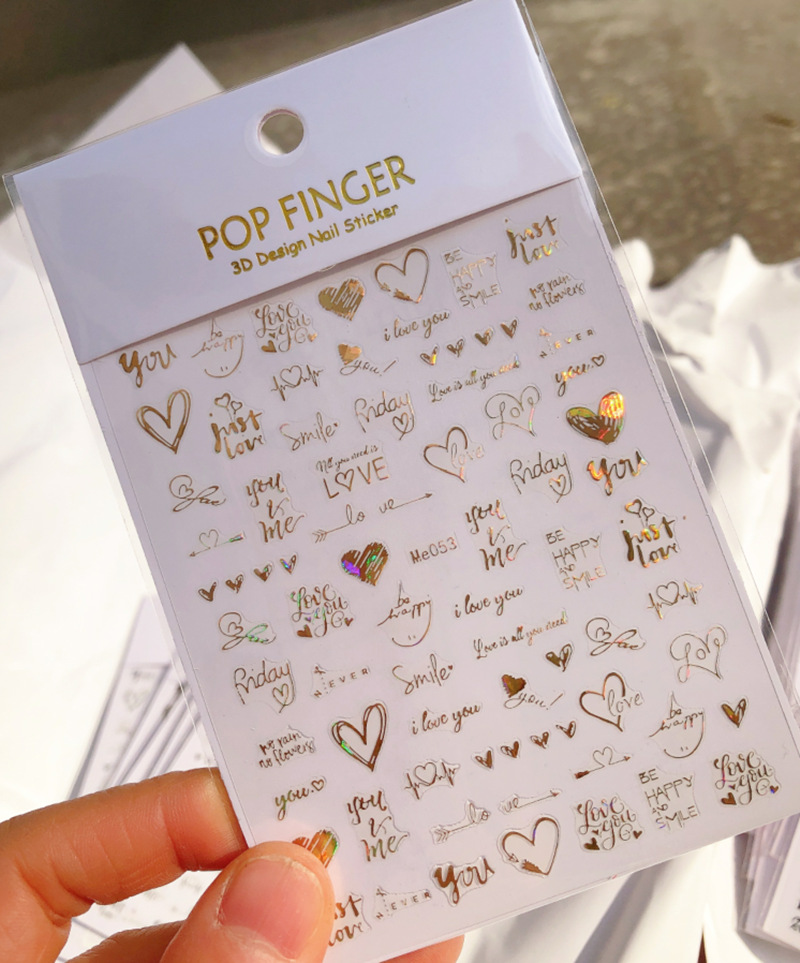 POP FINGER
3D Design Nail Sticker
just
love
BE
HAPPY
AND
SMILE
Love
you
be
happy
you
i love you
no rain
no flowers
NEVER
you!
Love is all you need
you
just
love
Smile
Friday
Love
All you need is
LOVE
love
Friday
you
you
&
me
lo ve
Me053
you
&
me
BE
HAPPY
AND
SMILE
just
love
Love
you
be
happy
i love you
Love is all you need
Friday
NEVER
Smile
you!
love
Love
no rain
no flowers
i love you
be
happy
you
you
&
me
lo ve
Love
you
BE
HAPPY
AND
SMILE
Love
you
just
love
NEVER
you